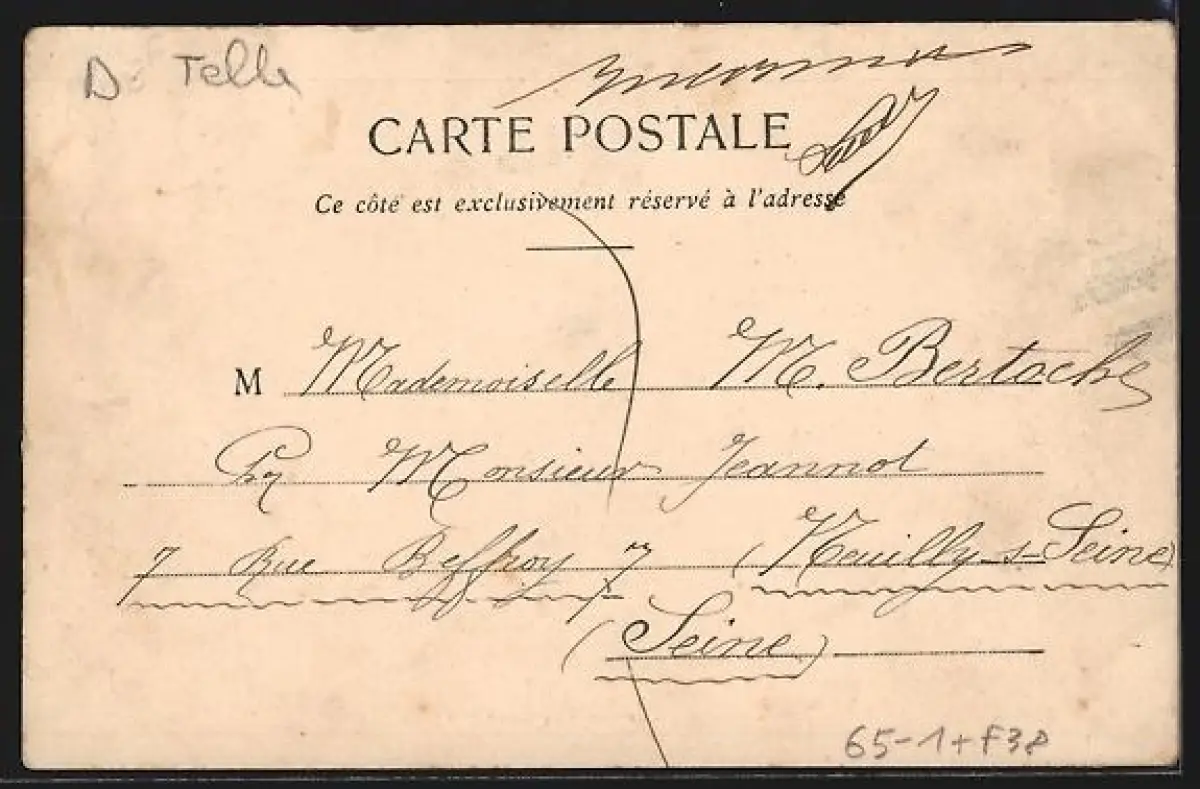 D. Telle
CARTE POSTALE
Ce côté est exclusivement réservé à l'adresse
M Mademoiselle M. Bertoche
Monsieur Jeannot
7 Rue Beffroy 7 (Neuilly-s-Seine)
(Seine)
65-1+F38